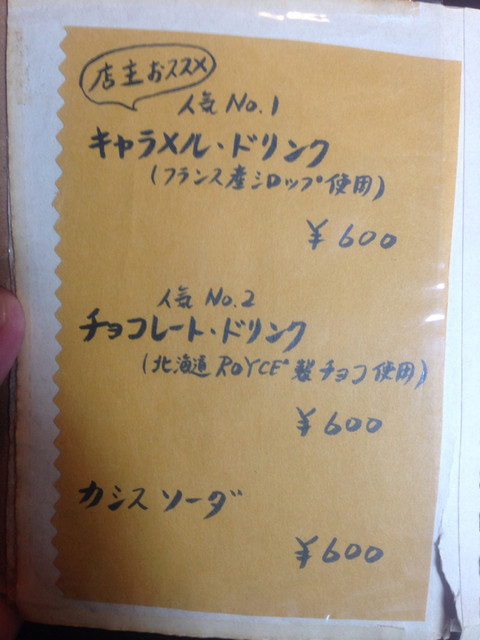 店主おススメ
人気 No.1
キャラメル・ドリンク
(フランス産シロップ使用)
¥600
人気 No.2
チョコレート・ドリンク
(北海道 ROYCE°製チョコ使用)
¥600
カシスソーダ
¥600